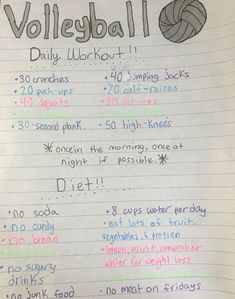 Volleyball
Daily Workout!!
• 30 crunches • 40 Jumping Jacks
• 20 push-ups • 20 calf-raises
• 40 squats • 20 sit-ups
• 30-second plank • 50 high-knees
*once in the morning, once at
night if possible.*
Diet!!
• no soda • 8 cups water per day
• no candy • eat lots of fruit,
• no bread vegetables, & protien
• lemon, mint, cucumber
• no sugary water for weight loss
drinks
• no junk food • no meat on fridays